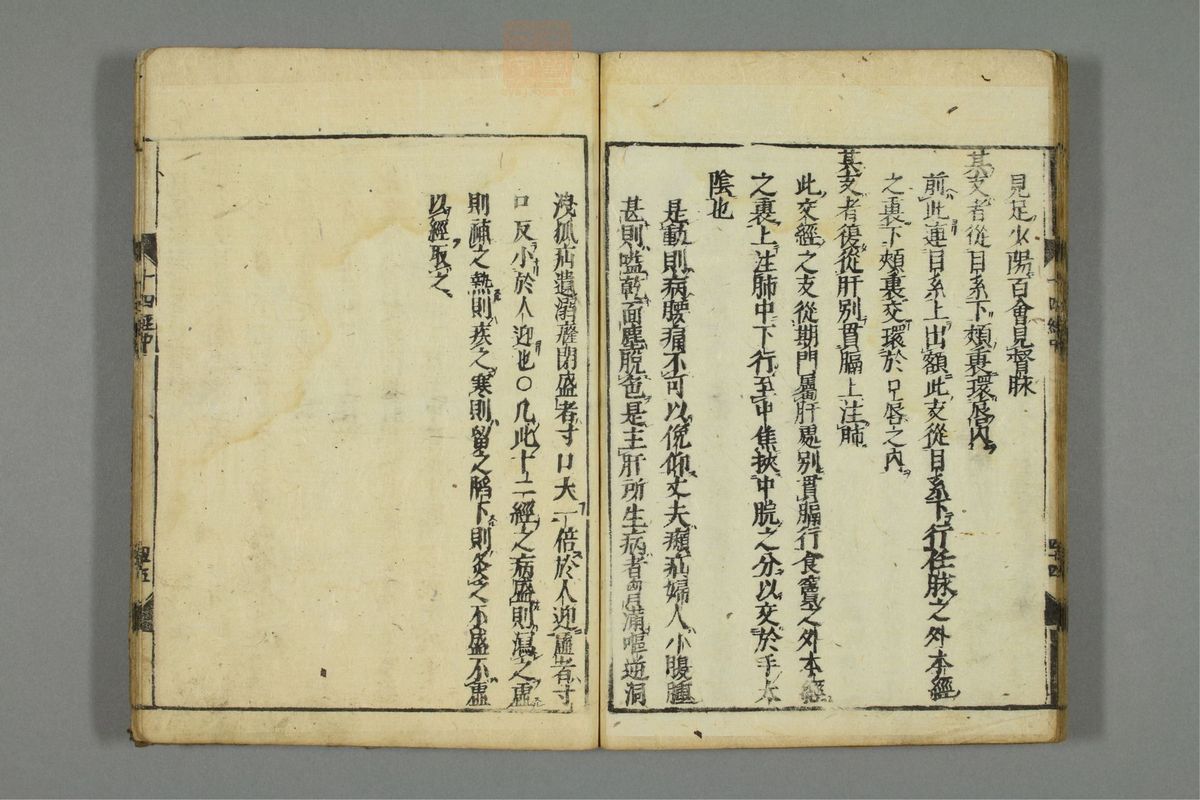 見足少陽百會見督脉
其支者從目系下頰裏環唇内
前此連目系上出額此支從目系下行任脉之外本經
之裏下頰裏交環於口唇之内
其支者復從肝別貫膈上注肺
此交經之支從期門屬肝處別貫膈行食竇之外本經
之裏上注肺中下行至中焦挾中脘之分以交於手太
陰也
是動則病腰痛不可以俛仰丈夫㿉疝婦人小腹腫
甚則嗌乾面塵脱色是主肝所生病者胷滿嘔逆洞
洩狐疝遺溺癃閉盛者寸口大一倍於人迎虛者寸
口反小於人迎也○凡此十二經之病盛則瀉之虛
則補之熱則疾之寒則留之陷下則灸之不盛不虛
以經取之
十四經中
四十五